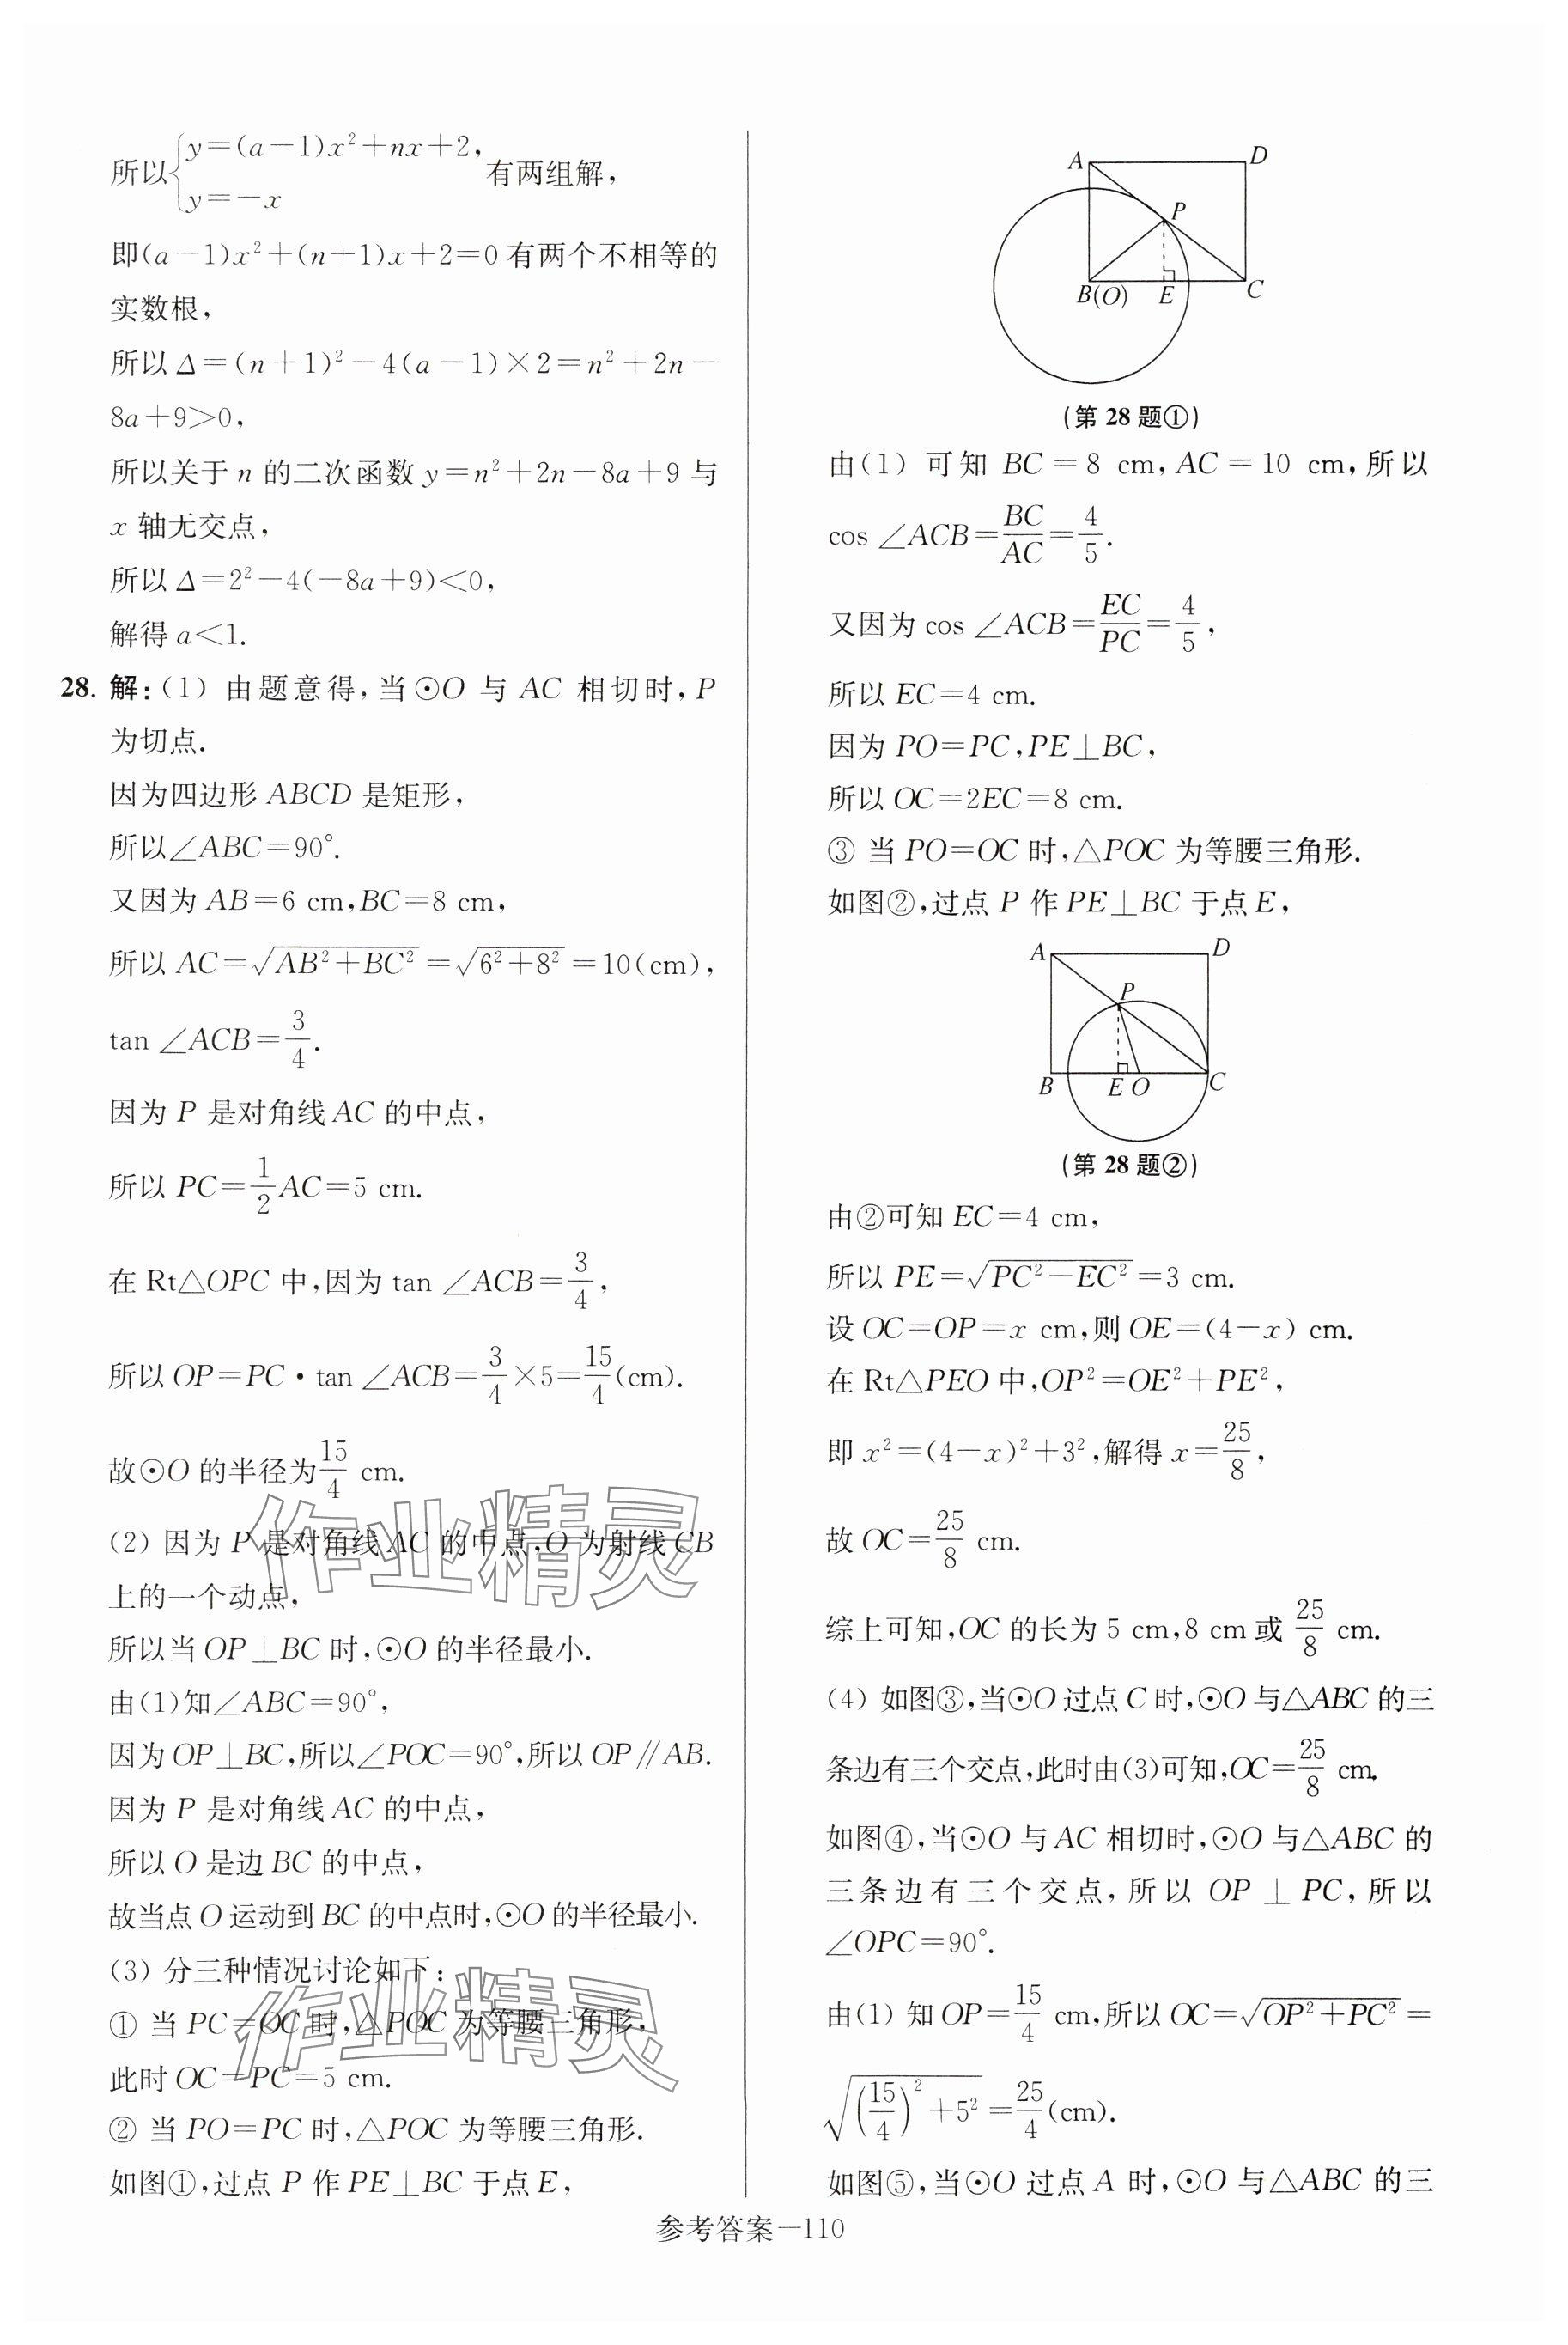 所以{y=(a-1)x²+nx+2, y=-x 有两组解,
即(a-1)x²+(n+1)x+2=0有两个不相等的
实数根,
所以Δ=(n+1)²-4(a-1)×2=n²+2n-
8a+9>0,
所以关于n的二次函数y=n²+2n-8a+9与
x轴无交点,
所以Δ=2²-4(-8a+9)<0,
解得a<1.
28. 解:(1) 由题意得,当⊙O与AC相切时,P
为切点.
因为四边形ABCD是矩形,
所以∠ABC=90°.
又因为AB=6 cm,BC=8 cm,
所以AC=√(AB²+BC²)=√(6²+8²)=10(cm),
tan∠ACB=3/4.
因为P是对角线AC的中点,
所以PC=1/2AC=5 cm.
在Rt△OPC中,因为tan∠ACB=3/4,
所以OP=PC·tan∠ACB=3/4×5=15/4(cm).
故⊙O的半径为15/4 cm.
(2) 因为P是对角线AC的中点,O为射线CB
上的一个动点,
所以当OP⊥BC时,⊙O的半径最小.
由(1)知∠ABC=90°,
因为OP⊥BC,所以∠POC=90°,所以OP∥AB.
因为P是对角线AC的中点,
所以O是边BC的中点,
故当点O运动到BC的中点时,⊙O的半径最小.
(3) 分三种情况讨论如下:
① 当PC=OC时,△POC为等腰三角形,
此时OC=PC=5 cm.
② 当PO=PC时,△POC为等腰三角形.
如图①,过点P作PE⊥BC于点E,
A D
P
B(O) E C
(第28题①)
由(1)可知BC=8 cm,AC=10 cm,所以
cos∠ACB=BC/AC=4/5.
又因为cos∠ACB=EC/PC=4/5,
所以EC=4 cm.
因为PO=PC,PE⊥BC,
所以OC=2EC=8 cm.
③ 当PO=OC时,△POC为等腰三角形.
如图②,过点P作PE⊥BC于点E,
A D
P
B E O C
(第28题②)
由②可知EC=4 cm,
所以PE=√(PC²-EC²)=3 cm.
设OC=OP=x cm,则OE=(4-x) cm.
在Rt△PEO中,OP²=OE²+PE²,
即x²=(4-x)²+3²,解得x=25/8,
故OC=25/8 cm.
综上可知,OC的长为5 cm,8 cm或25/8 cm.
(4) 如图③,当⊙O过点C时,⊙O与△ABC的三
条边有三个交点,此时由(3)可知,OC=25/8 cm.
如图④,当⊙O与AC相切时,⊙O与△ABC的
三条边有三个交点,所以OP⊥PC,所以
∠OPC=90°.
由(1)知OP=15/4 cm,所以OC=√(OP²+PC²)=
√((15/4)²+5²)=25/4(cm).
如图⑤,当⊙O过点A时,⊙O与△ABC的三
参考答案—110
作业精灵
作业精灵